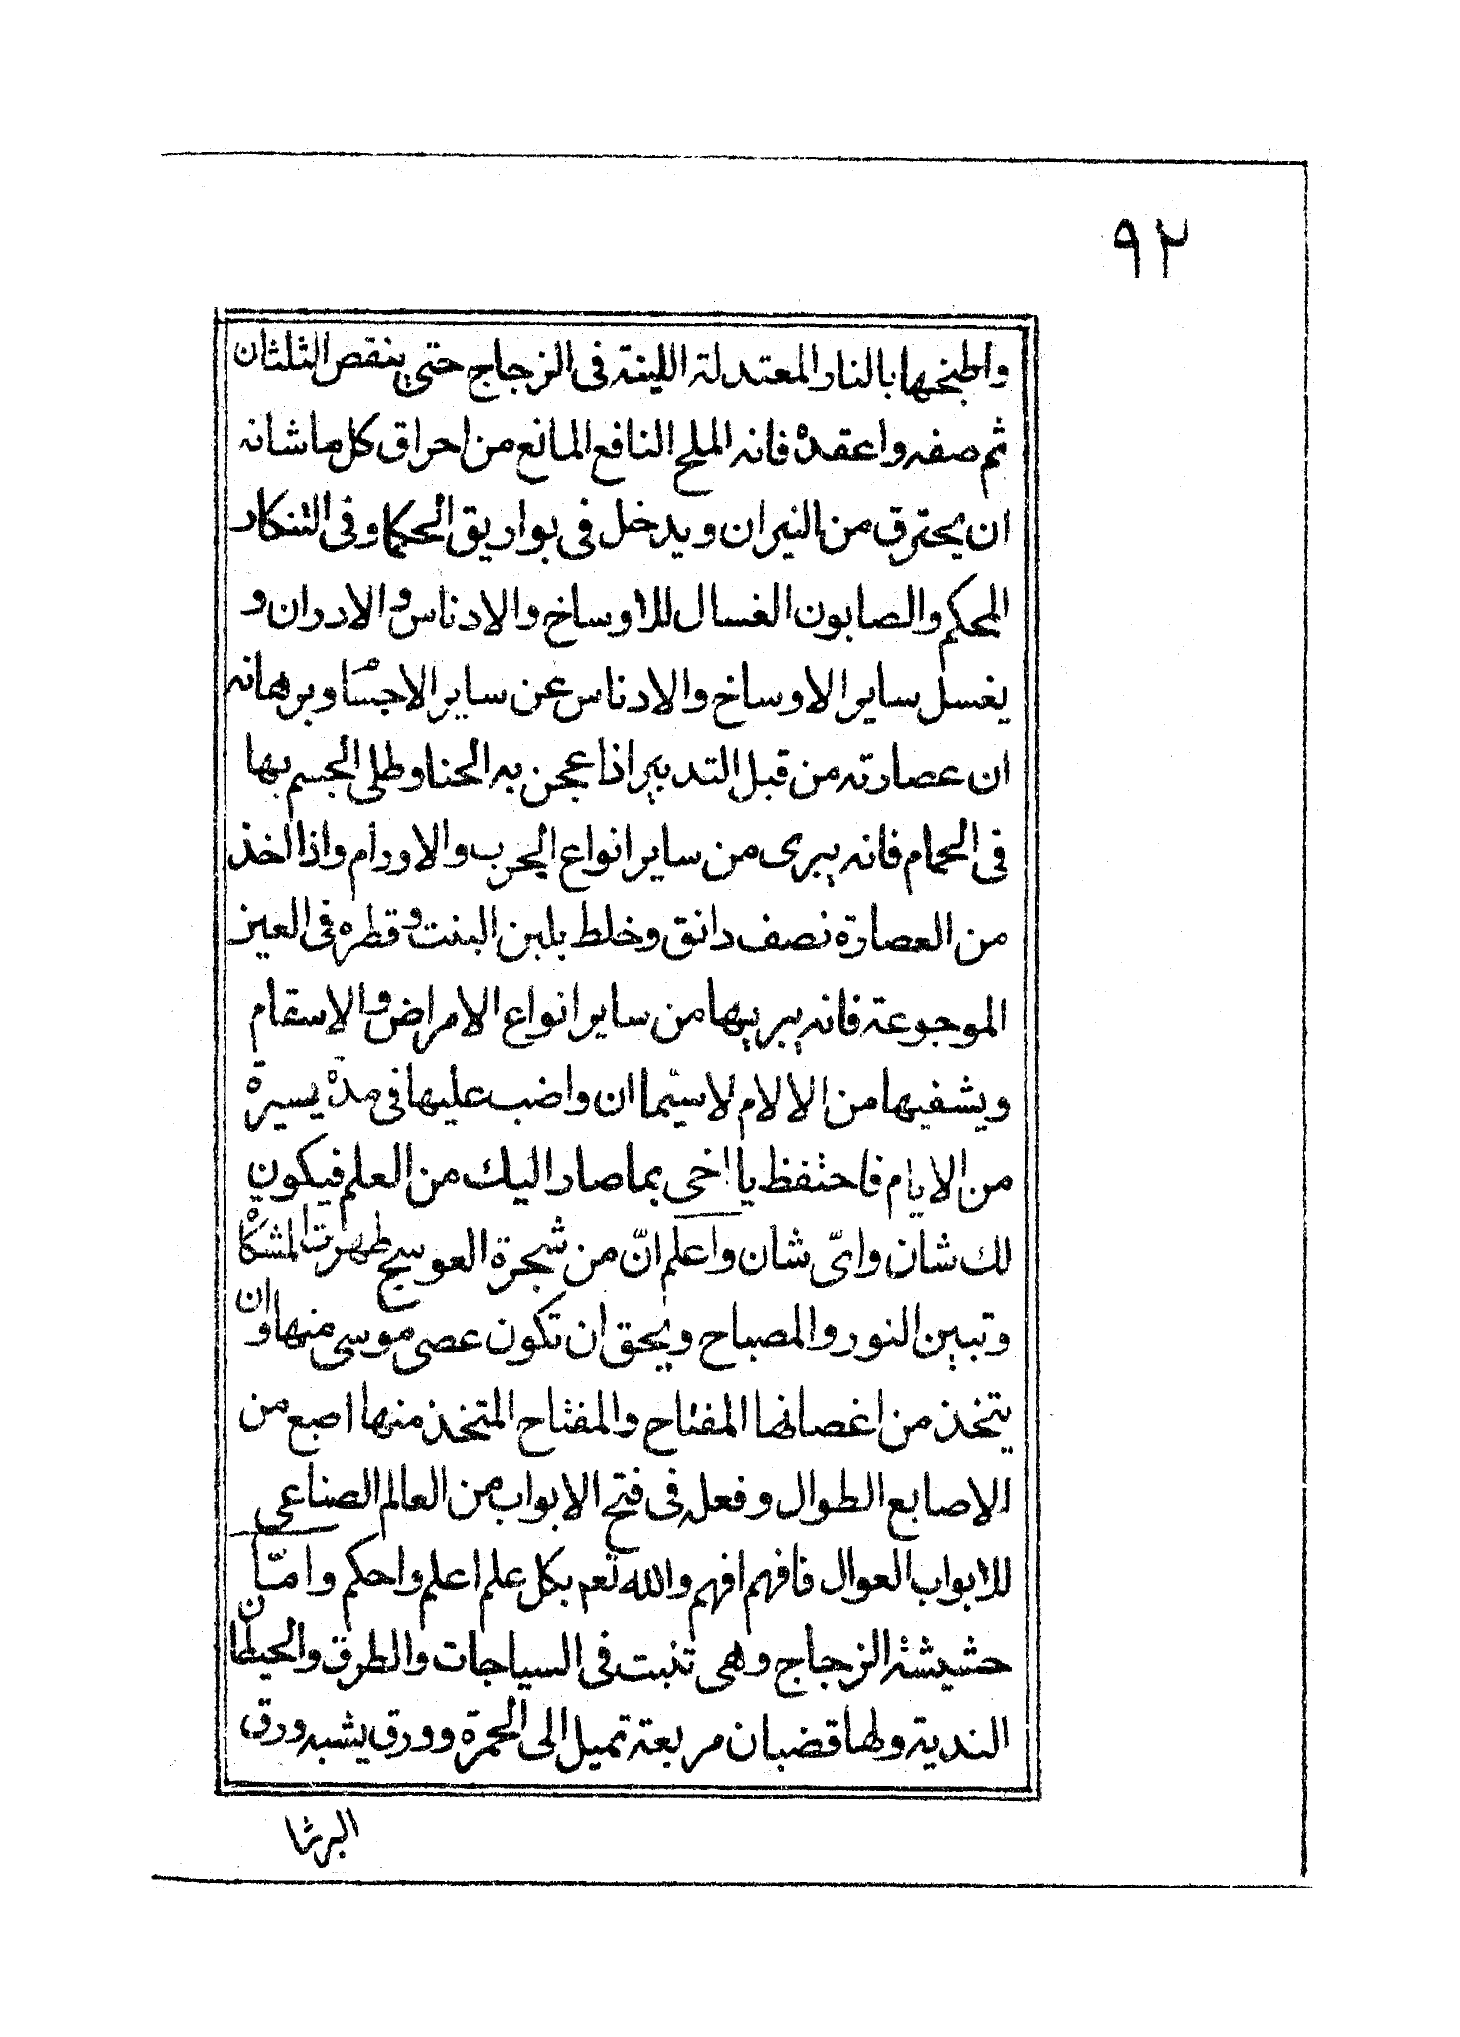 ٩٢
واطبخها بالنار المعتدلة اللينة فى الزجاج حتى ينقص الثلثان
ثم صفه واعقده فانه الملح النافع المانع من احراق كل ما شانه
ان يحترق من النيران ويدخل فى بواريق الحكما وفى التنكار
المحكم والصابون الغسال للاوساخ والادناس والادران و
يغسل ساير الاوساخ والادناس عن ساير الاجسام وبرهانه
ان عصارته من قبل التدبير اذا عجن به الحنا وطلى الجسم بها
فى الحمام فانه يبرى من ساير انواع الجرب والاورام واذا اخذ
من العصارة نصف دانق وخلط بلبن البنت وقطره فى العين
الموجوعة فانه يبريها من ساير انواع الامراض والاسقام
ويشفيها من الالام لاسيما ان واضب عليها فى مدة يسيرة
من الايام فاحتفظ يا اخى بما صار اليك من العلم فيكون
لك شان واىّ شان واعلم انّ من شجرة العوسج ظهرت المشكاة
وتبين النور والمصباح ويحق ان تكون عصى موسى منها وان
يتخذ من اغصانها المفتاح والمفتاح المتخذ منها اصبع من
الاصابع الطوال وفعله فى فتح الابواب من العالم الصناعى
للابواب العوال فافهم افهم والله تعم بكل علم اعلم واحكم وامّا
حشيشة الزجاج وهى تنبت فى السياجات والطرق والحيطان
الندية ولها قضبان مربعة تميل الى الحمرة وورق يشبه ورق